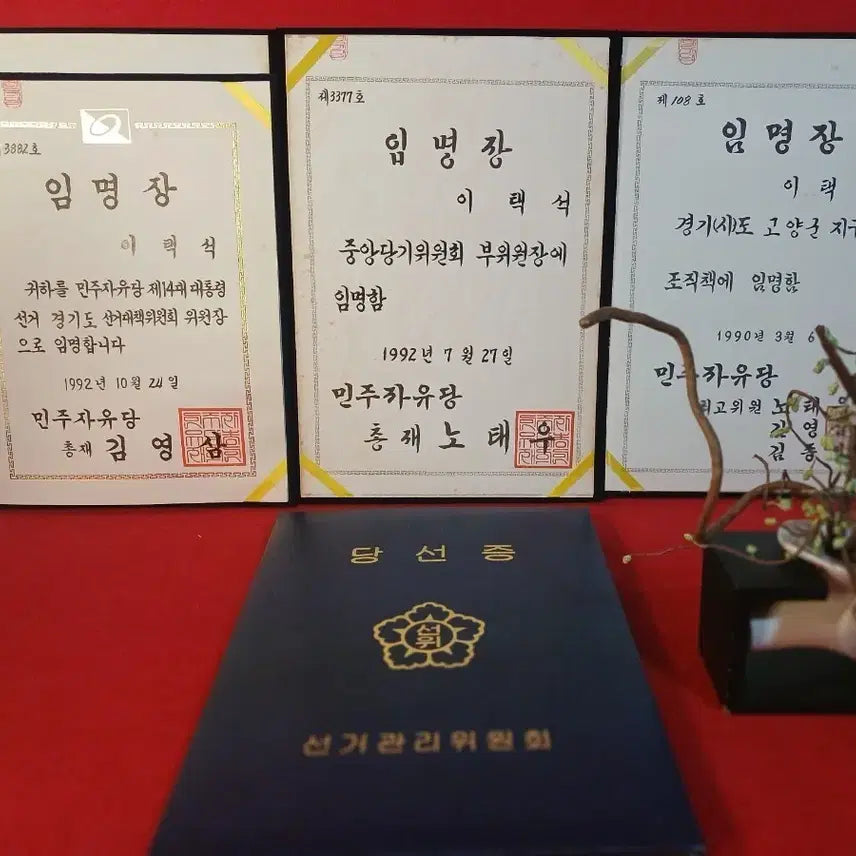 3882호
임명장
이택석
귀하를 민주자유당 제14대 대통령
선거 경기도 선거대책위원회 위원장
으로 임명합니다
1992년 10월 24일
민주자유당
총재 김영삼
제3377호
임명장
이택석
중앙당기위원회 부위원장에
임명함
1992년 7월 27일
민주자유당
총재 노태우
제108호
임명장
이택
경기(시)도 고양군 지구
조직책에 임명함
1990년 3월 6
민주자유당
최고위원 노태우
김영
김종
당선증
선위
선거관리위원회